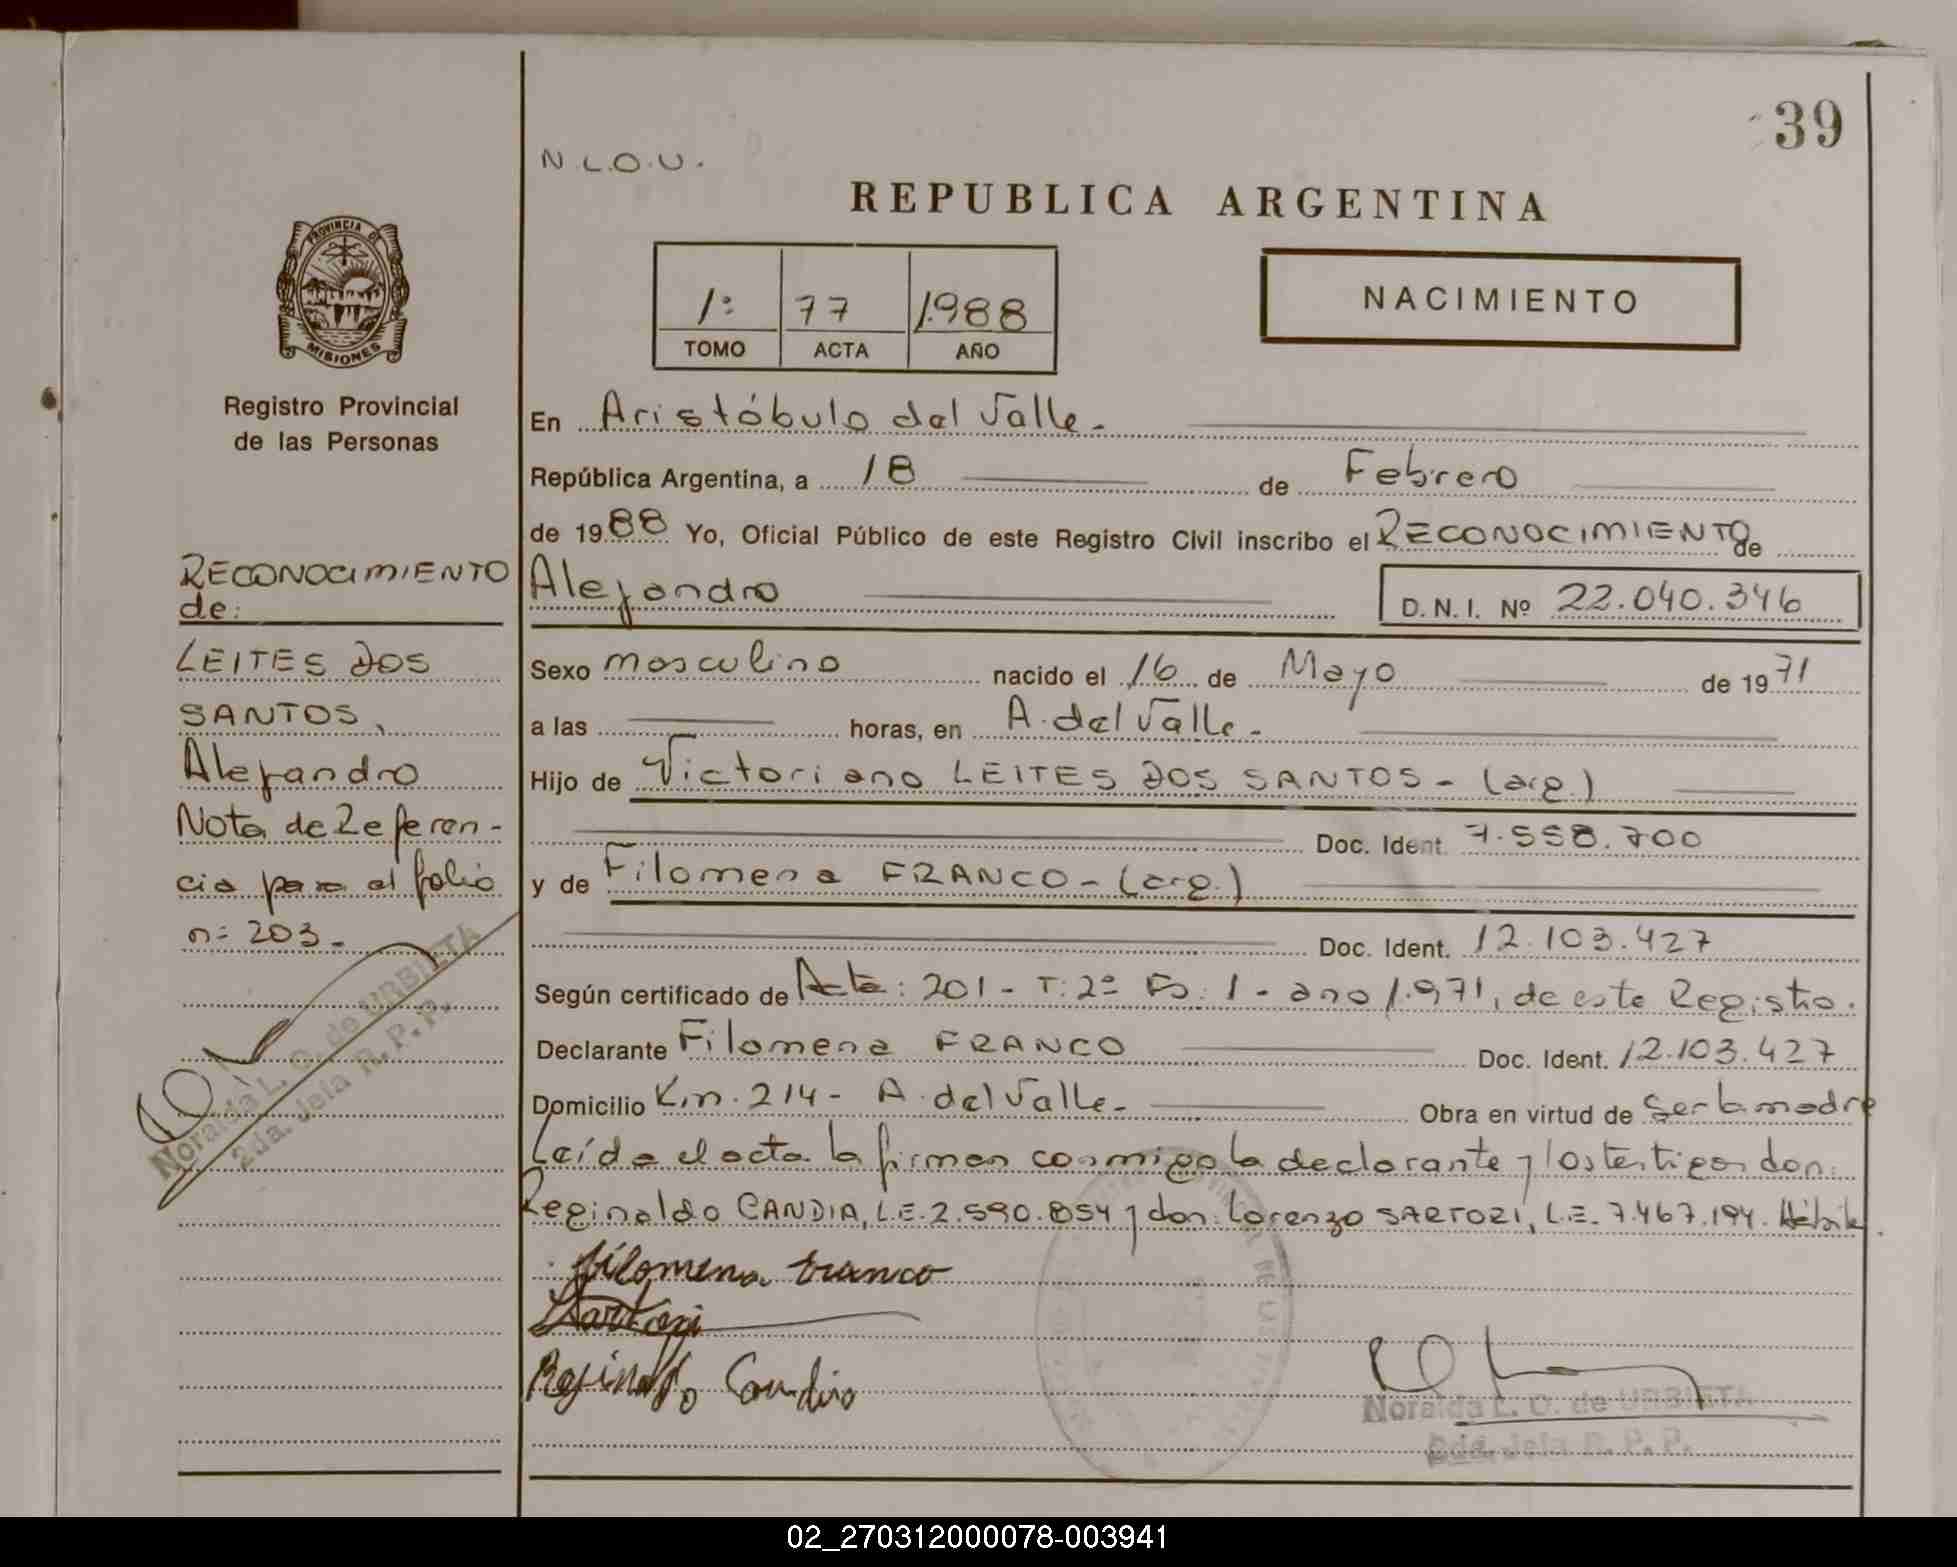 39
N.L.O.U.
REPUBLICA ARGENTINA
PROVINCIA DE
MISIONES
1º 77 1.988
TOMO ACTA AÑO
NACIMIENTO
Registro Provincial
de las Personas
En Aristóbulo del Valle.-
República Argentina, a 18 de Febrero
de 1988 Yo, Oficial Público de este Registro Civil inscribo el RECONOCIMIENTO de
Alejandro D. N. I. Nº 22.040.346
Sexo masculino nacido el 16 de Mayo de 1971
a las horas, en A. del Valle.-
Hijo de Victoriano LEITES DOS SANTOS - (arg.)
Doc. Ident. 7.558.700
y de Filomena FRANCO - (arg.)
Doc. Ident. 12.103.427
Según certificado de Acta: 201 - T: 2º Fo: 1 - ano 1.971, de este Registro.
Declarante Filomena FRANCO Doc. Ident. 12.103.427
Domicilio Km. 214 - A. del Valle.- Obra en virtud de ser la madre
Leída el acta la firman conmigo la declarante y los testigos don:
Reginaldo CANDIA, L.E. 2.590.854 y don: Lorenzo SARTORI, L.E. 7.467.194. Hábiles.
filomena franco
Sartori
Reginaldo Candia
Noralda L. O. de URBIETA
2da. Jefa R. P. P.
RECONOCIMIENTO
de:
LEITES DOS
SANTOS,
Alejandro
Nota de Referen-
cia para el folio
nº 203.-
Noralda L. O. de URBIETA
2da. Jefa R. P. P.
02_270312000078-003941